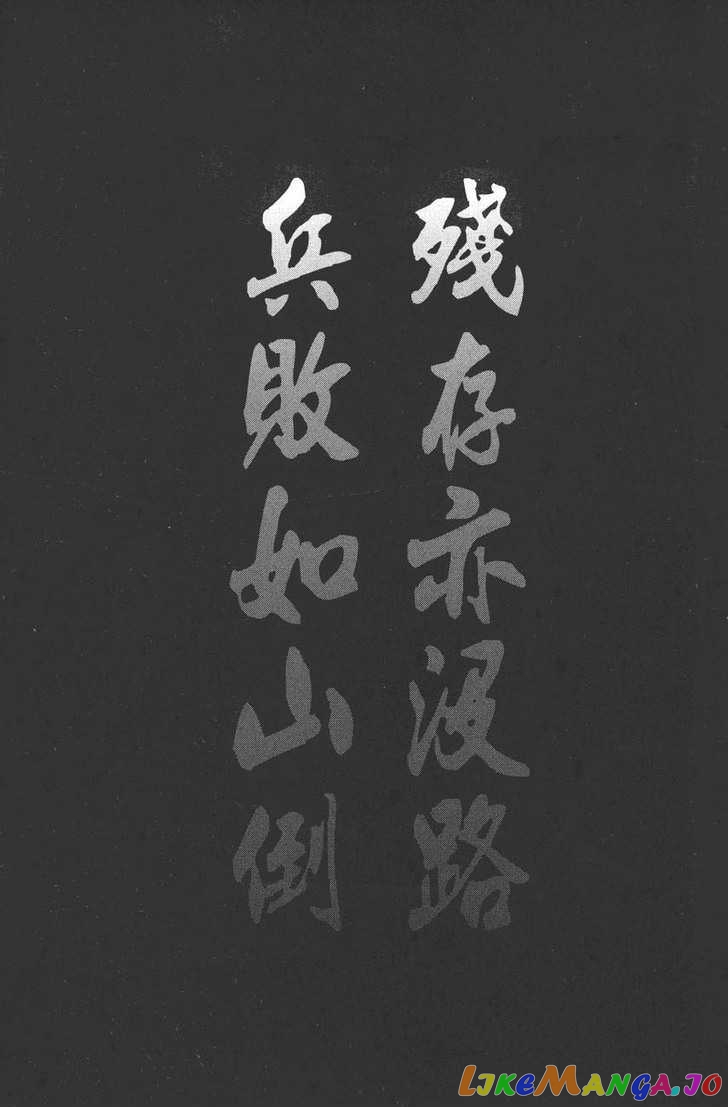 殘存亦没路
兵敗如山倒
LIKEMANGA.IO